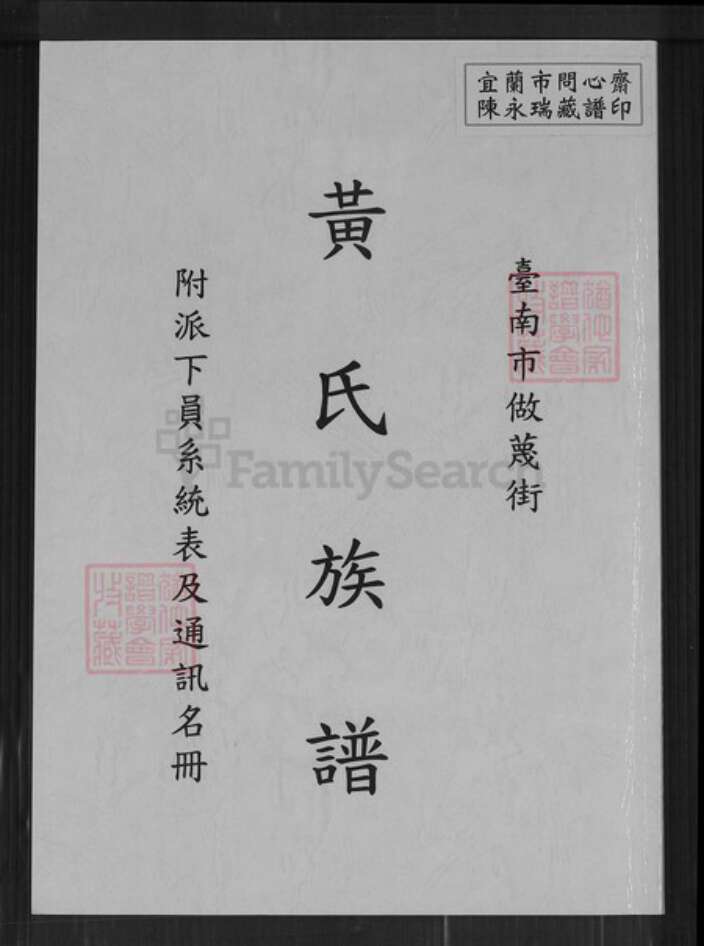 宜蘭市問心齋
陳永瑞藏譜印
臺南市做蔑街
黃氏族譜
附派下員系統表及通訊名冊
FamilySearch